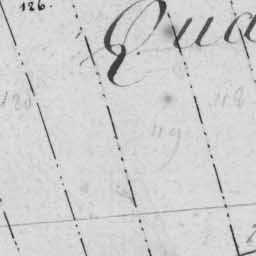 126.
Qua
120
119
118